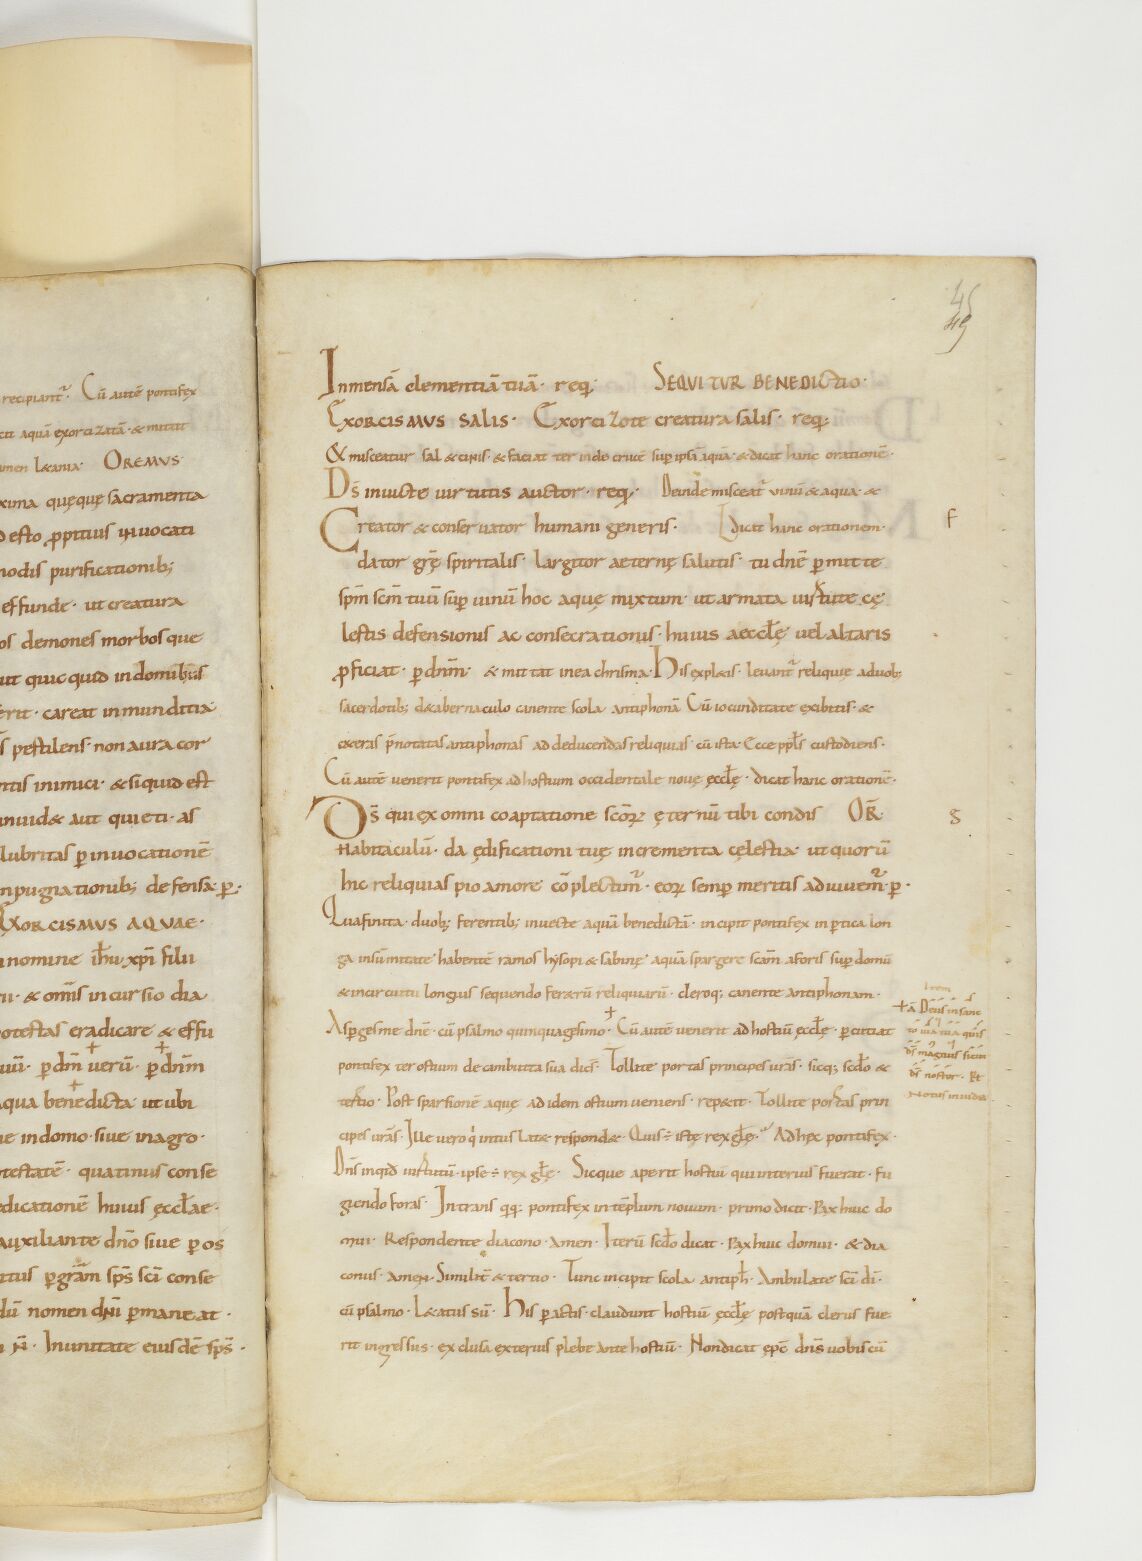 recipiant᷑. Cū autē pontifex
aquā exorcizatā· & mittit
Lætania· OREMUS·
quęque sacramenta
esto ꝓpitius invocati
modis purificationib;
effunde· ut creatura
demones morbosque
ut quicquid in domibus
careat inmunditia·
pestilens· non aura cor
inimici· & siquid est
invidæ aut quieti· as
lubritas ꝑ invocationē
inpugnationib; defensa· ꝑ·
EXORCISMUS AQUAE·
nomine ihū xpī filii
& omīs incursio dia
potestas eradicare & effu
ꝑ dm̄ verū· ꝑ dnm̄
aqua benedicta ut ubi
in domo· sive in agro·
potestatē· quatinus conse
dedicationē huius ęccl̄ae·
Auxiliante dn̄o sive ꝑ os
ꝑ grām sp̄s scī conse
nomen dn̄i ꝑmaneat·
In unitate eiusdē sp̄s·
45
49
Inmensā clementiā tuā· req̄· SEQUITUR BENEDICtio·
EXORCISMUS SALIS· Exorcizote creatura salis· req̄;
& misceatur sal & cinis· & faciat ter inde crucē suꝑ ipsā aquā· & dicat hanc orationē·
Ds̄ invicte virtutis auctor· req̄; Deinde misceat᷑ vinū & aqua· &
Creator & conservator humani generis· dicat hanc orationem·
f
dator grē spiritalis· largitor aeternę salutis· tu dnē ꝑmitte
spm̄ scm̄ tuū suꝑ vinū hoc aquę mixtum· ut armata virtute cę
lestis defensionis ac consecrationis· huius aeccl̄ę vel altaris
ꝓficiat· ꝑ dnm̄· & mittat in ea chrisma· His explætis· levant᷑ reliquię a duob;
sacerdotib; de tabernaculo canente scola antiphonā Cū iocunditate exibitis· &
cæteras p̄notatas antiphonas ad deducendas reliquias· cū ista· Ecce ppl̄s custodiens·
Cū autē venerit pontifex ad hostium occidentale novę ęccl̄ę· dicat hanc orationē·
Ds̄ qui ex omni coaptatione scōꝝ ęternū tibi condis OR̄
g
Habitaculū· da ędificationi tuę incrementa cęlestia· ut quorū
hic reliquias pio amore cō plectim᷑· eoꝝ semꝑ meritis adiuvem᷑· ꝑ·
Qua finita· duob; ferentib; in vecte aquā benedictā· incipit pontifex in ꝑtica lon
ga in sūmitate habentē ramos hysopi & sabinę aquā spargere scam̄ a foris suꝑ domū
& in circuitu longius sequendo ferærū reliquiarū· cleroq; canente antiphonam·
Asꝑges me dnē· cū psalmo quinquagesimo· Cū autē venerit ad hostiū ęccl̄ę· ꝑcutiat
Item
+ā Deus in sanc
to via tua quis
ds̄ magnus sicut
ds̄ noster· Ps
Notus in iudea
pontifex ter ostium de cambutta sua dics̄· Tollite portas principes vrās· sicq; scdo &
tertio· Post sparsionē aquę ad idem ostium veniens· repætit· Tollite portas prin
cipes vrās· Ille vero q̇ intus latæ respondæ· Quis ÷ iste rex gl̄ę· Ad hęc pontifex·
Dn̄s inqid virtutū· ipse ÷ rex gl̄ę· Sicque aperit hostiū qui interius fuerat· fu
giendo foras· Intrans q̄q; pontifex in tēplum novum· primo dicit· Pax huic do
mui· Respondente diacono· Amen· Iterū scdo dicat· Pax huic domui· & dia
conus· AMEN· Similit̄ & tertio· Tunc incipit scola antiph̄· Ambulate scī dī·
cū psalmo· Lætatus sū· His ꝑactis· claudunt hostiū ęccl̄ę postquā clerus fue
rit ingressus· exclusa exterius plebe ante hostiū· Non dicat ępc̄ dn̄s vobiscū